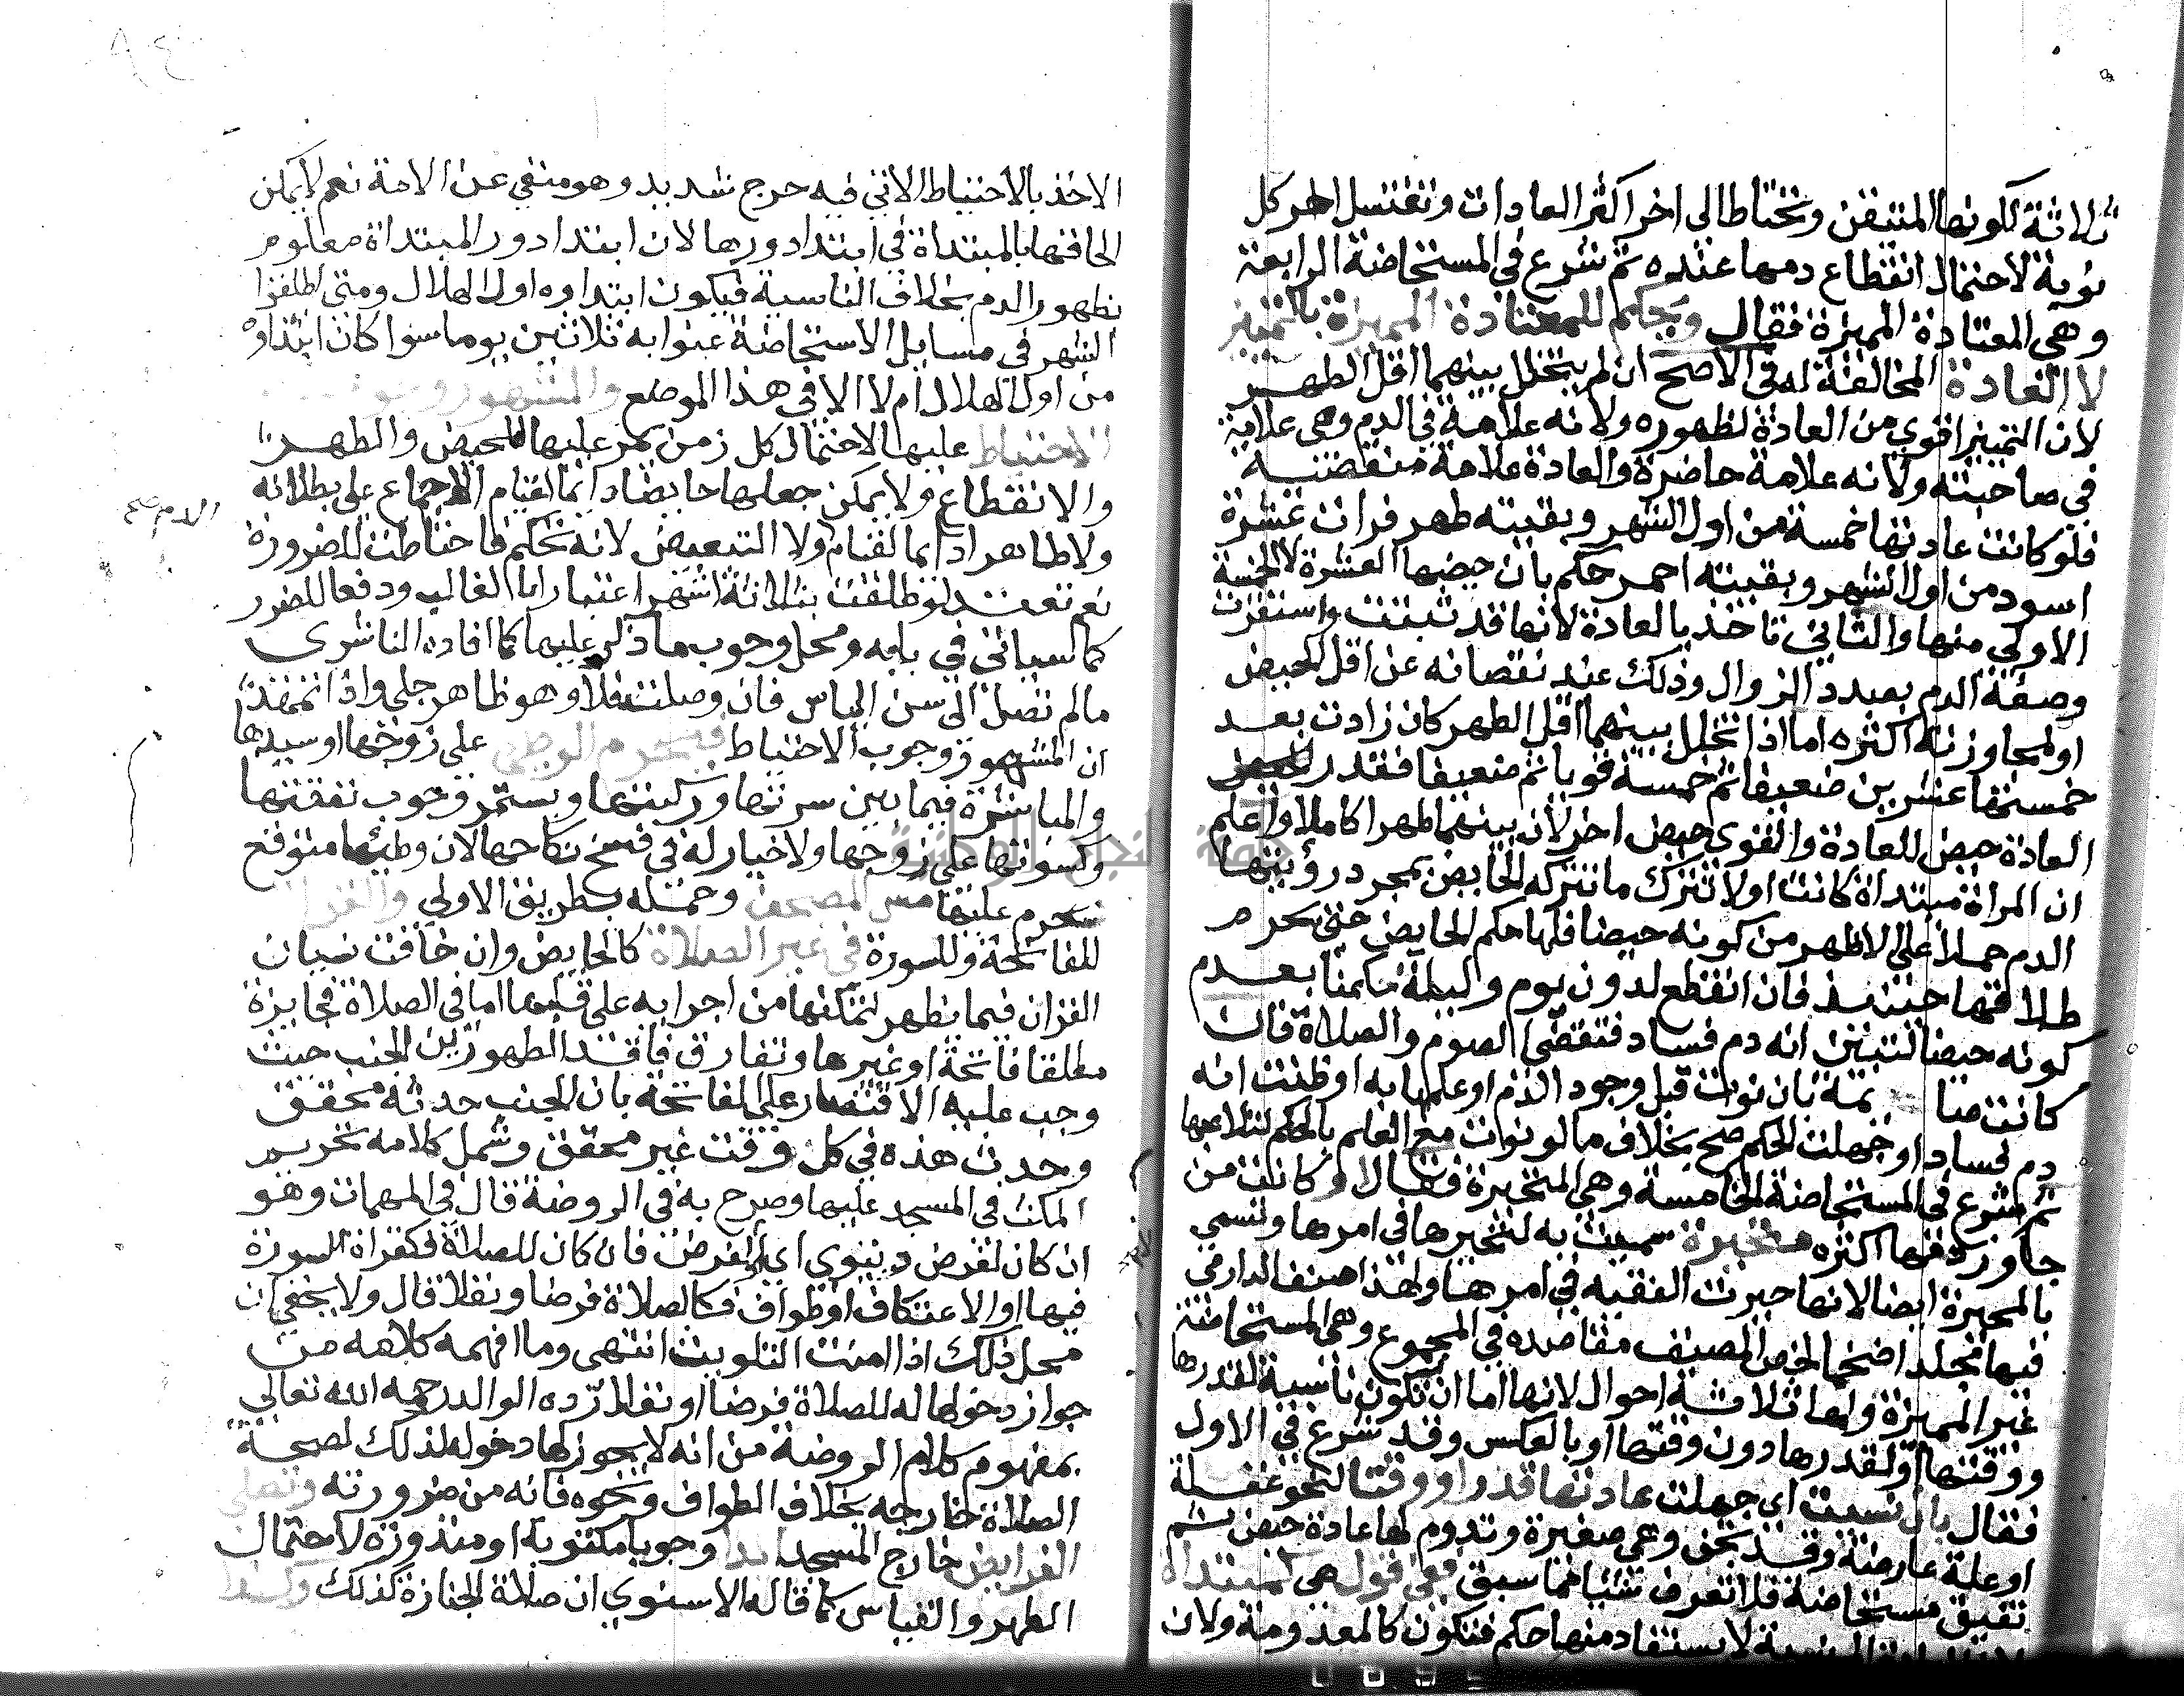 ثلاثة لكونها المتيقن وتحتاط الى اخر اكثر العادات وتغتسل اخر كل
نوبة لاحتمال انقطاع دمها عنده ثم شرع في المستحاضة الرابعة
وهي المعتادة المميزة فقال ويحكم للمعتادة المميزة بالتمييز
لا العادة المخالفة له في الاصح ان لم يتخلل بينهما اقل الطهر
لان التمييز اقوي من العادة لظهوره ولانه علامة في الدم وهي علامة
في صاحبته ولانه علامة حاضرة والعادة علامة منقضية
فلو كانت عادتها خمسة من اول الشهر وبقيته طهر فرات عشرة
اسود من اول الشهر وبقيته احمر حكم بان حيضها العشرة لا الخمسة
الاولي منها والثاني تاخذ بالعادة لانها قد ثبتت واستقرت
وصفة الدم بصدد الزوال وذلك عند نقصانه عن اقل الحيض
او لمجاوزته اكثره اما اذا تخلل بينهما اقل الطهر كان زادت بعد
خمستها عشرين ضعيفا ثم خمسة قويا ثم ضعيفا فقدر
العادة حيض للعادة والقوي حيض اخر لان بينهما طهرا كاملا واعلم
ان المراة مبتداة كانت اولا تترك ما تتركه الحايض بمجرد رؤيتها
الدم حملا علي الاظهر من كونه حيضا فلها حكم الحايض حتى يحرم
طلاقها حينئذ فان انقطع لدون يوم وليلة حكمنا بعدم
كونه حيضا لتبين انه دم فساد فتقضي الصوم والصلاة فان
كانت صايمة بان نوت قبل وجود الدم او علمها به او ظنت انه
دم فساد او جهلت الحكم صح بخلاف ما لو نوت مع العلم بالحكم لتلاعبها
ثم شرع في المستحاضة الخامسة وهي المتحيرة فقال او كانت من
جاوز دمها اكثره متحيرة سميت به لتحيرها في امرها وتسمي
بالمحيرة ايضا لانها حيرت الفقيه في امرها ولهذا صنف الدارمي
فيها مجلدا ضخما لخص المصنف مقاصده في المجموع وهي المستحاضة
غير المميزة ولها ثلاثة احوال لانها اما ان تكون ناسية لقدرها
ووقتها او لقدرها دون وقتها او بالعكس وقد شرع في الاول
فقال بان نسيت اي جهلت عادتها قدرا ووقتا لنحو غفلة
او علة عارضة وقد تجن وهي صغيرة وتدوم لها عادة حيض ثم
تفيق مستحاضة فلا تعرف شيا مما سبق ففي قول هي كمبتداة
لان العادة المنسية لا يستفاد منها حكم فتكون كالمعدومة ولان
الاخذ بالاحتياط الاتي فيه حرج شديد وهو منفي عن الامة نعم لا يمكن
الحاقها بالمبتداة في ابتدا دورها لان ابتدا دور المبتداة معلوم
بظهور الدم بخلاف الناسية فيكون ابتداوه اول الهلال ومتي اطلقوا
الشهر في مسايل الاستحاضة عنوا به ثلاثين يوما سوا كان ابتداوه
من اول الهلال ام لا الا في هذا الموضع والمشهور وجوب
الاحتياط عليها لاحتمال كل زمن يمر عليها للحيض والطهر
والانقطاع ولا يمكن جعلها حايضا دايما لقيام الاجماع على بطلانه
الدم صح
ولا طاهرا دايما لقيام ولا التبعيض لانه تحكم فاحتاطت للضرورة
نعم تعتد لو طلقت بثلاثة اشهر اعتبارا بالغالب ودفعا للضرر
كما سياتي في بابه ومحل وجوب ما ذكر عليها كما افاده الناشري
ما لم تصل الى سن الياس فان وصلت فلا وهو ظاهر جلي واذا تمهد
ان المشهور وجوب الاحتياط فيحرم الوطي على زوجها او سيدها
والمباشرة فيما بين سرتها وركبتها ويستمر وجوب نفقتها
وكسوتها على زوجها ولا خيار له في فسخ نكاحها لان وطيها متوقع
فيحرم عليها مس المصحف وحمله بطريق الاولي والقراة
للفاتحة وللسورة في غير الصلاة كالحايض وان خافت نسيان
القران فيما يظهر لتمكنها من اجرايه على قلبها اما في الصلاة فجايزة
مطلقا فاتحة او غيرها وتفارق فاقد الطهورين الجنب حيث
وجب عليه الاقتصار على الفاتحة بان الجنب حدثه محقق
وحدث هذه في كل وقت غير محقق وشمل كلامه تحريم
المكث في المسجد عليها وصرح به في الروضة قال في المهمات وهو
ان كان لغرض دنيوي اي لا لغرض فان كان للصلاة فكقراة السورة
فيها او الاعتكاف او طواف فكالصلاة فرضا ونفلا قال ولا يخفي ان
محل ذلك اذا امنت التلويث انتهى وما افهمه كلامه من
جواز دخولها له للصلاة فرضا او نفلا رده الوالد رحمه الله تعالي
بمفهوم كلام الروضة من انه لا يجوز لها دخوله لذلك لصحة
الصلاة خارجه بخلاف الطواف ونحوه فانه من ضرورته وتصلي
الفرايض خارج المسجد ابدا وجوبا مكتوبة او منذورة لاحتمال
الطهر والقياس كما قاله الاسنوي ان صلاة الجنازة كذلك وكذا